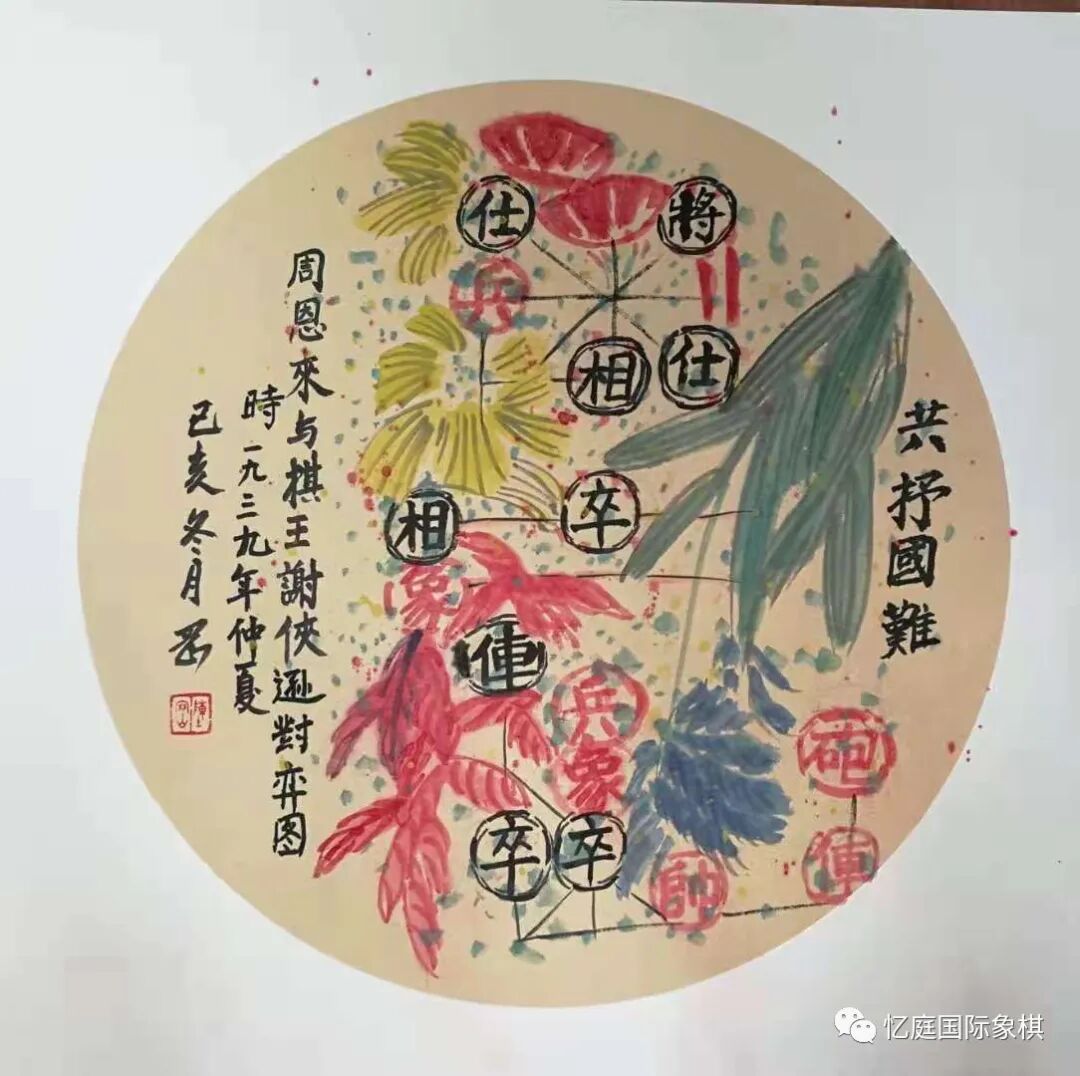 共抒國難
周恩來与棋王謝俠遜對弈图
時一九三九年仲夏
己亥冬月
仕
將
兵
相
仕
相
卒
象
俥
兵
象
砲
卒
卒
帥
俥
忆庭国际象棋